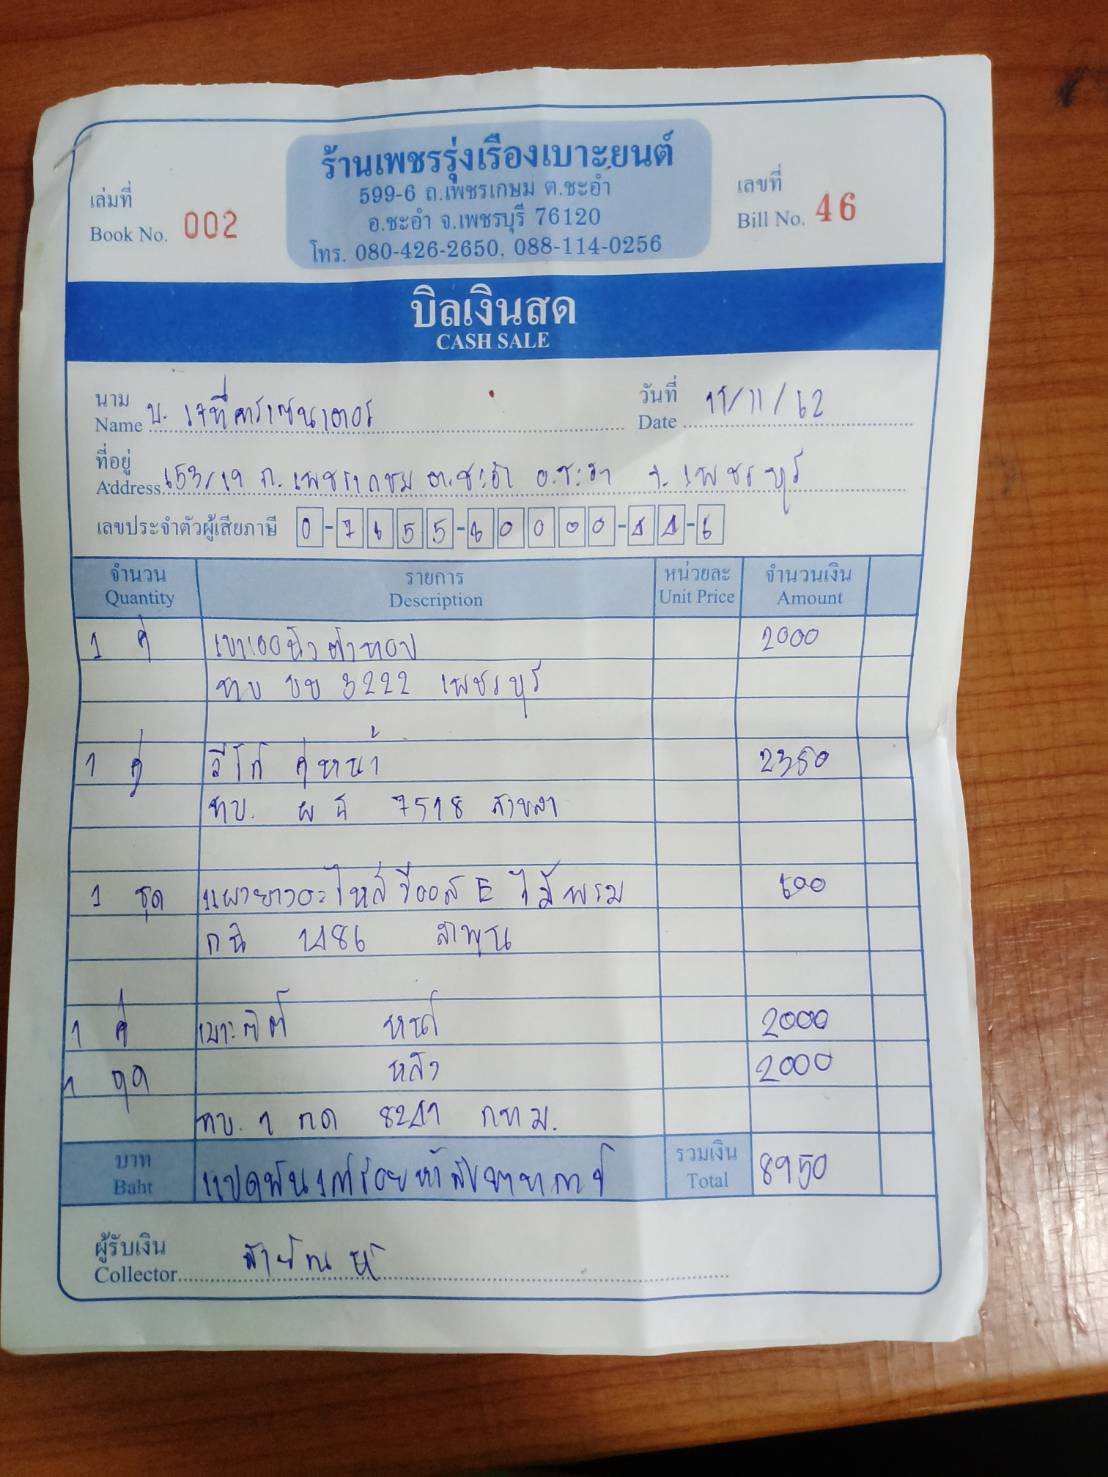 ร้านเพชรรุ่งเรืองเบาะยนต์
599-6 ถ.เพชรเกษม ต.ชะอำ
อ.ชะอำ จ.เพชรบุรี 76120
โทร. 080-426-2650, 088-114-0256
เล่มที่
Book No. 002
เลขที่
Bill No. 46
บิลเงินสด
CASH SALE
นาม
Name บ. เจที่คาร์เซนเตอร์
วันที่
Date /11/62
ที่อยู่
Address 653/19 ถ. เพชรเกษม ต.ชะอำ อ.ชะอำ จ. เพชรบุรี
เลขประจำตัวผู้เสียภาษี 0-7655-60000-44-6
จำนวน รายการ หน่วยละ จำนวนเงิน
Quantity Description Unit Price Amount
1 คู่ 2000
3222 เพชรบุรี
1 คู่ วีโก้ คู่หน้า 2350
ทบ. ผฉ 7518 สงขลา
1 ชุด E ไม้พรม 600
กฉ 1486 ลำพูน
1 คู่ หน้า 2000
1 ชุด หลัง 2000
ทบ. 1 กด 8241 กทม.
บาท แปดพันเก้าร้อยห้าสิบบาทถ้วน รวมเงิน 8950
Baht Total
ผู้รับเงิน
Collector